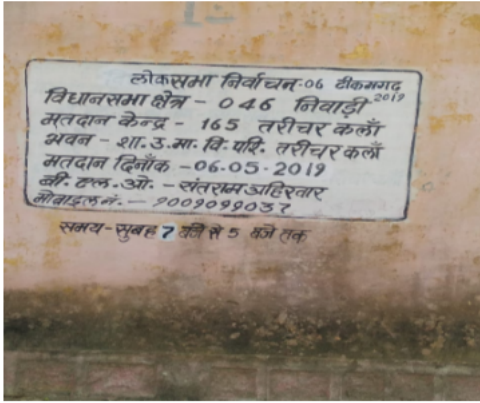 लोकसभा निर्वाचन-06 टीकमगढ़ 2019
विधानसभा क्षेत्र - 046 निवाड़ी
मतदान केन्द्र - 165 तरीचर कलाँ
भवन - शा. उ. मा. वि. परि. तरीचर कलाँ
मतदान दिनाँक -06.05.2019
बी. एल. ओ. - संतराम अहिरवार
मोबाइल नं. - 9009099037
समय-सुबह 7 बजे से 5 बजे तक